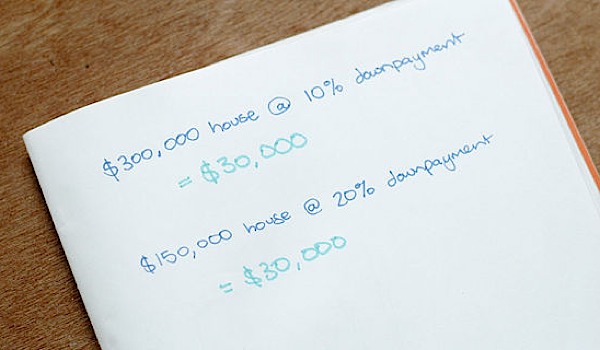 $300,000 house @ 10% downpayment
= $30,000
$150,000 house @ 20% downpayment
= $30,000